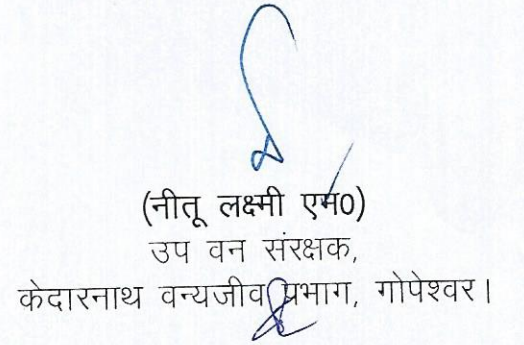 (नीतू लक्ष्मी एम0)
उप वन संरक्षक,
केदारनाथ वन्यजीव प्रभाग, गोपेश्वर।